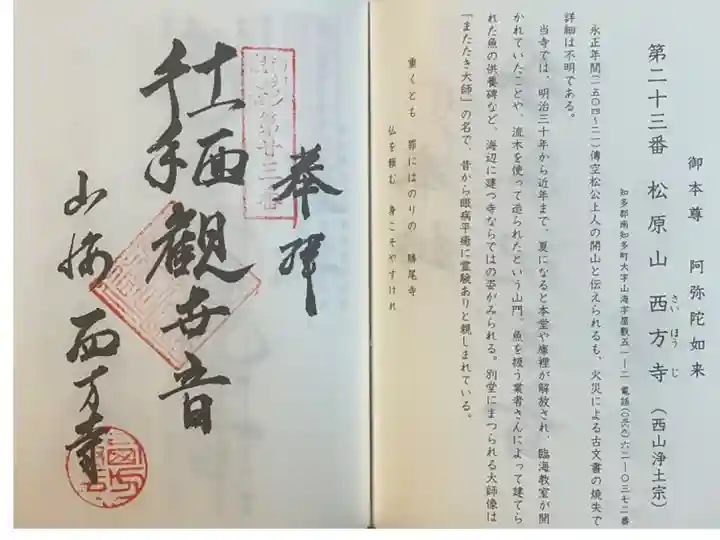 御本尊　阿弥陀如来
第二十三番　松原山　西方寺（西山浄土宗）
さい　ほう　じ
知多郡南知多町大字山海字屋敷五一ー二　電話（〇五六九）六二ー〇三七二番
永正年間（一五〇四〜二一）傳空松公上人の開山と伝えられるも、火災による古文書の焼失で
詳細は不明である。
当寺では、明治三十年から近年まで、夏になると本堂や庫裡が解放され、臨海教室が開
かれていたことや、流木を使って造られたという山門、魚を扱う業者さんによって建てら
れた魚の供養碑など、海辺に建つ寺ならではの姿がみられる。別堂にまつられる大師像は
「またたき大師」の名で、昔から眼病平癒に霊験ありと親しまれている。
重くとも　罪にはのりの　勝尾寺
仏を頼む　身こそやすけれ
奉拝
第廿三番
千手観世音
山海　西方寺